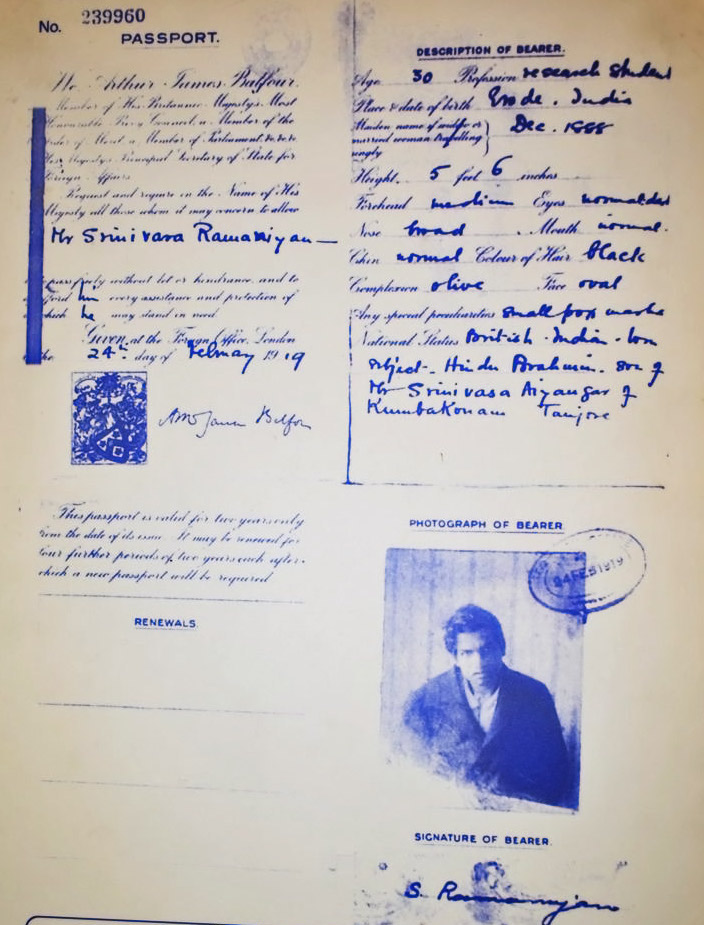 No. 239960
PASSPORT.
We Arthur James Balfour.
Member of His Britannic Majesty's Most
Honourable Privy Council, a Member of the
Order of Merit a Member of Parliament, &c &c &c
His Majesty's Principal Secretary of State for
Foreign Affairs
Request and require in the Name of His
Majesty all those whom it may concern to allow
Mr Srinivasa Ramanujan
to pass freely without let or hindrance, and to
afford him every assistance and protection of
which he may stand in need.
Given at the Foreign Office, London
the 24th day of February 1919
This passport is valid for two years only
from the date of its issue. It may be renewed for
four further periods of two years each after
which a new passport will be required
RENEWALS.
DESCRIPTION OF BEARER.
Age 30 Profession research student
Place & date of birth Erode. India
Maiden name of widow or
married woman travelling
singly
Dec. 1888
Height. 5 feet 6 inches
Forehead medium Eyes normal
Nose broad . Mouth normal.
Chin normal Colour of Hair black
Complexion olive Face oval
Any special peculiarities small pox marks
National Status British-Indian-born
subject - Hindu Brahmin. son of
Mr Srinivasa Aiyangar of
Kumbakonam Tanjore
PHOTOGRAPH OF BEARER
24 FEB 1919
SIGNATURE OF BEARER.
S. Ramanujan